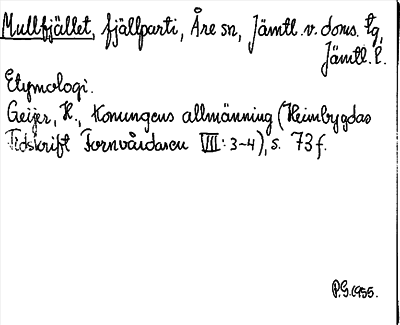 Mullfjället, fjällparti, Åre sn, Jämtl. v. doms. tg,
Jämtl. l.
Etymologi.
Geijer, H., Konungens allmänning (Heimbygdas
Tidskrift Fornvårdaren VIII: 3-4), s. 73 f.
P.G. 1955.